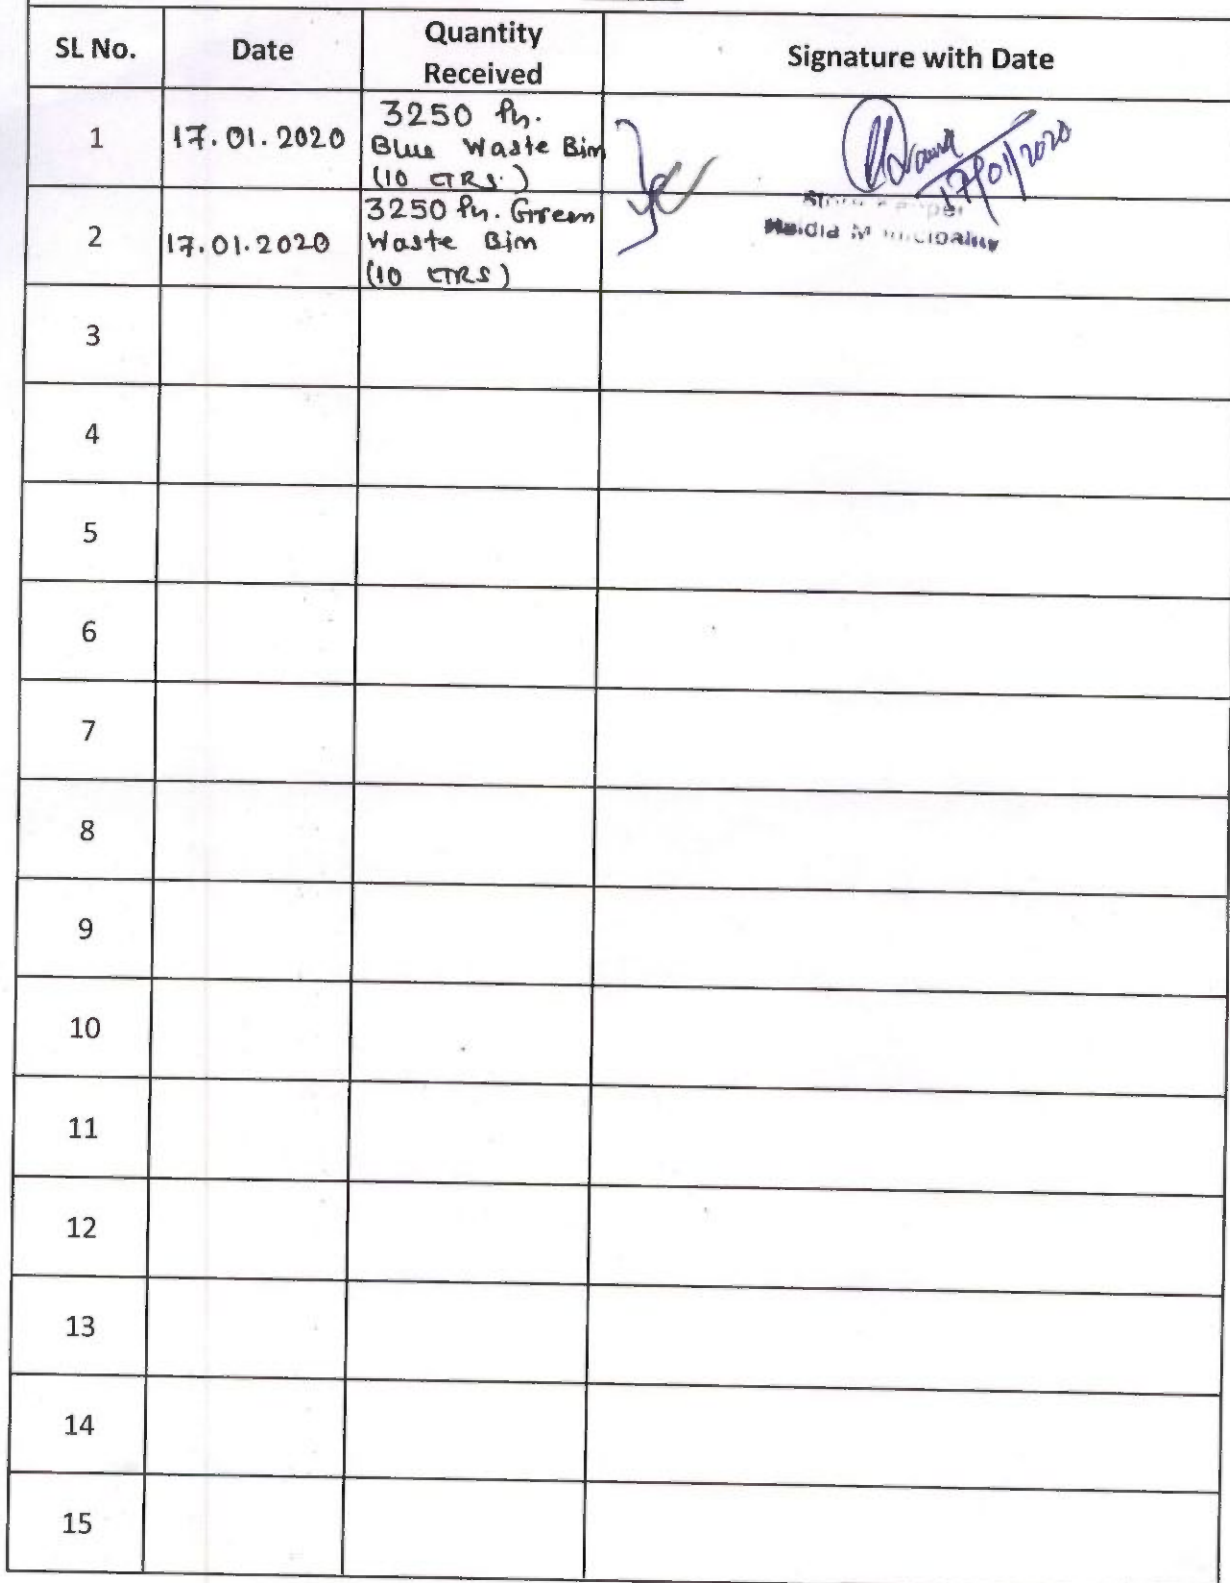 SL No. Date Quantity Received Signature with Date
1 17.01.2020 3250
Blue Waste Bin
(10 LTRS.)
17/01/2020
Store Keeper
Haldia Municipality
2 17.01.2020 3250 Green
Waste Bin
(10 LTRS)
3
4
5
6
7
8
9
10
11
12
13
14
15